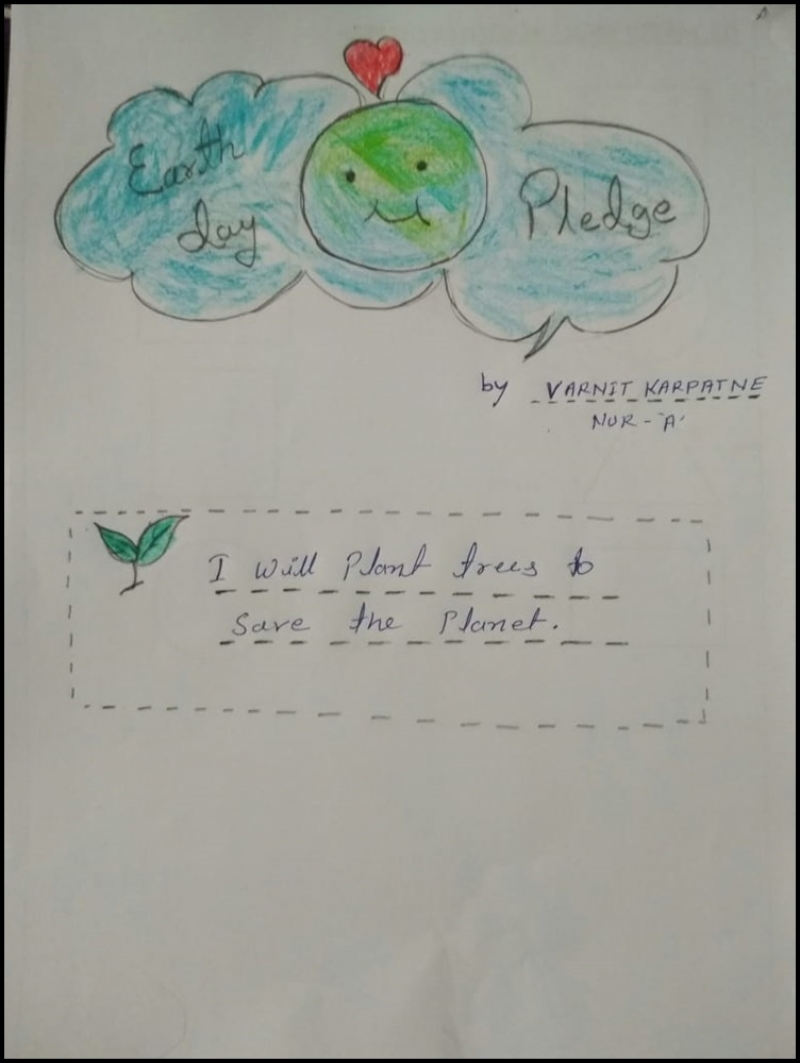 Earth
day
Pledge
by VARNIT KARPATNE
NUR-'A'
I will Plant trees to
Save the Planet.